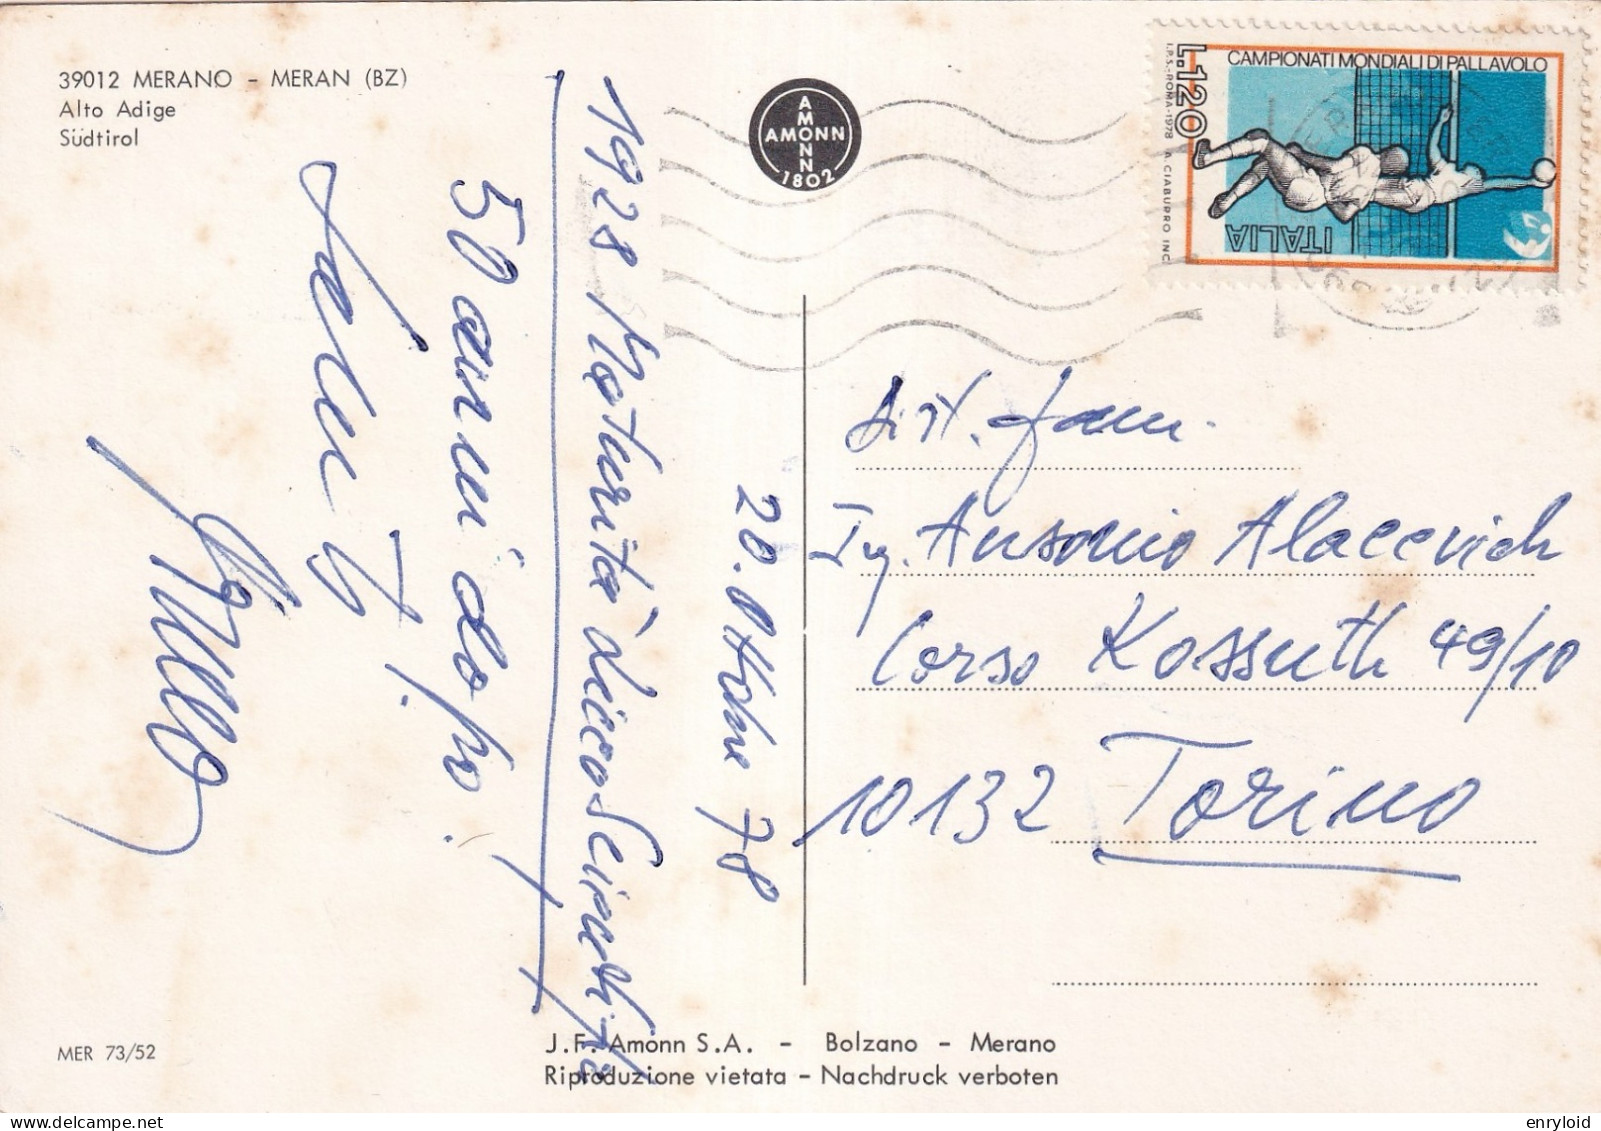 39012 MERANO - MERAN (BZ)
Alto Adige
Südtirol
AMONN
AMONN
1802
CAMPIONATI MONDIALI DI PALLAVOLO
L.120
ITALIA
I.P.S.-ROMA-1978 A. CIABURRO INC.
20. Ottobre 78
1928 Maturità Liceo Scientifico
50 anni dopo!
Saluti
Dist. fam.
Ing. Ausonio Alacevich
Corso Kossuth 49/10
10132 Torino
MER 73/52
J.F. Amonn S.A. - Bolzano - Merano
Riproduzione vietata - Nachdruck verboten
enryloid